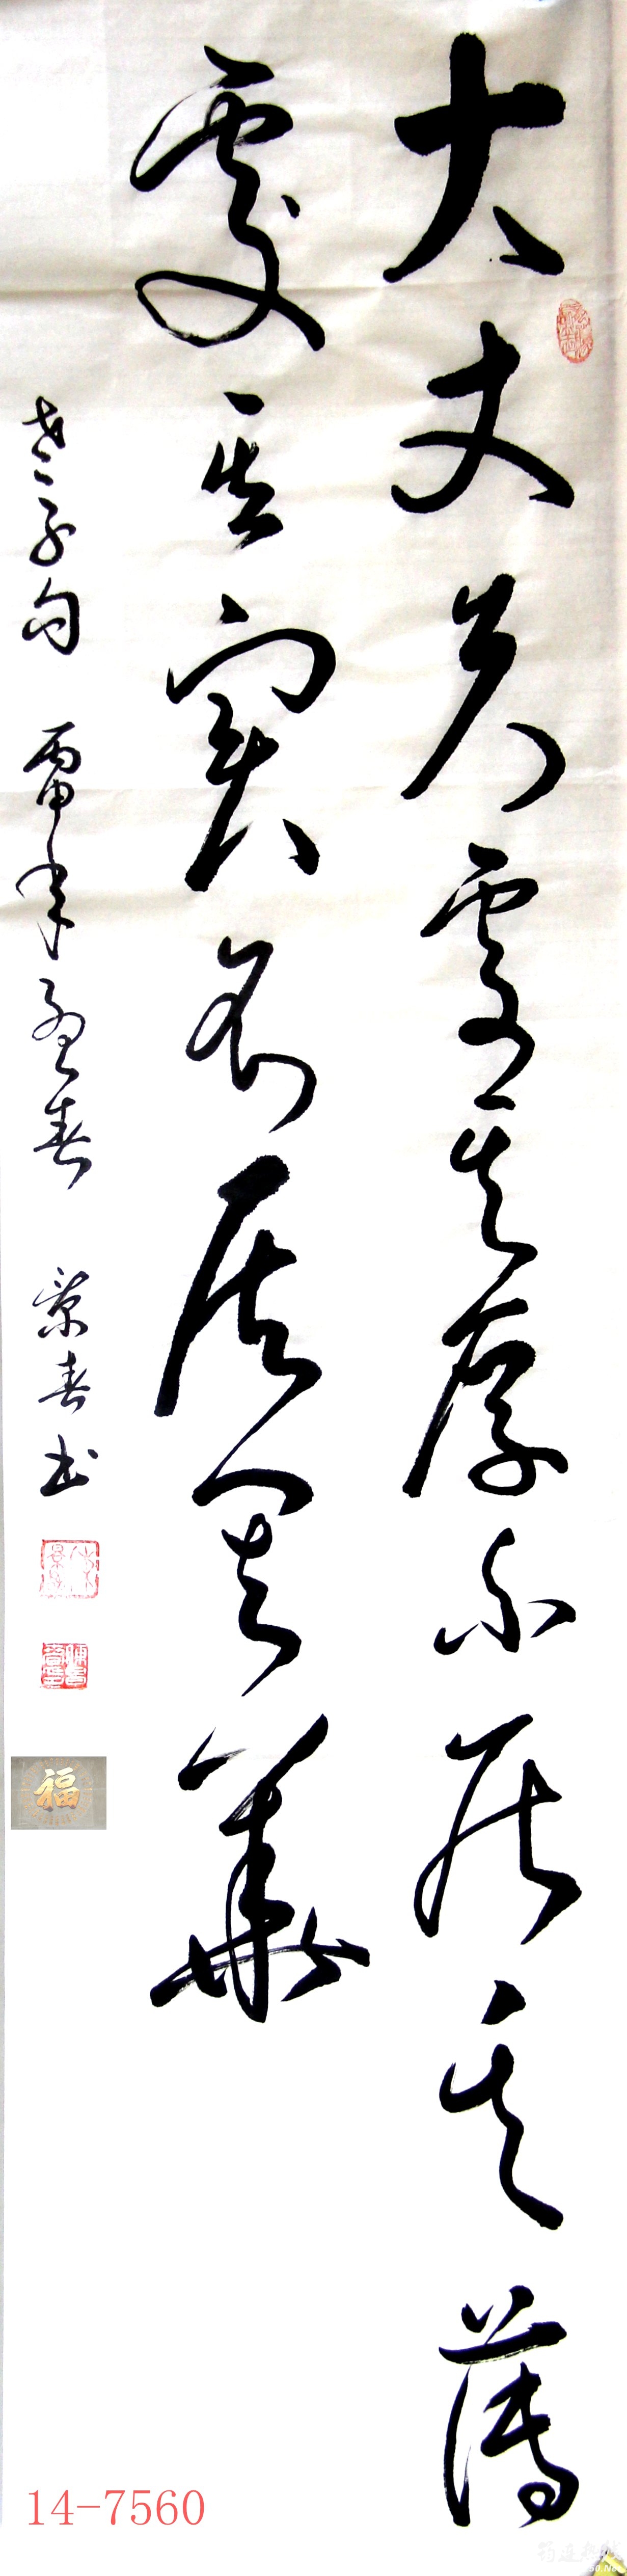 大丈夫處其厚不居其薄
處其實不居其華
老子句 丙申年孟春 景春书
福
14-7560